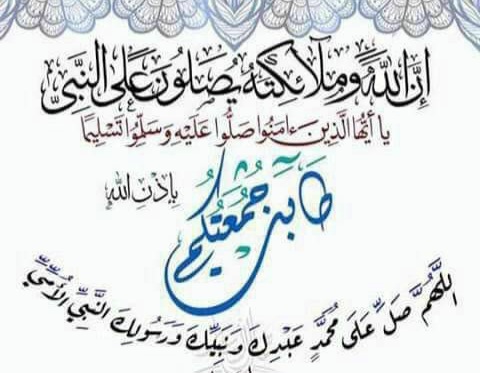 إِنَّ اللَّهَ وَمَلَائِكَتَهُ يُصَلُّونَ عَلَى النَّبِيِّ
يَا أَيُّهَا الَّذِينَ ءَامَنُوا صَلُّوا عَلَيْهِ وَسَلِّمُوا تَسْلِيمًا
طَابَتْ جُمُعَتُكُمْ بِإِذْنِ اللَّهِ
اللَّهُمَّ صَلِّ عَلَى مُحَمَّدٍ عَبْدِكَ وَنَبِيِّكَ وَرَسُولِكَ النَّبِيِّ الْأُمِّيِّ